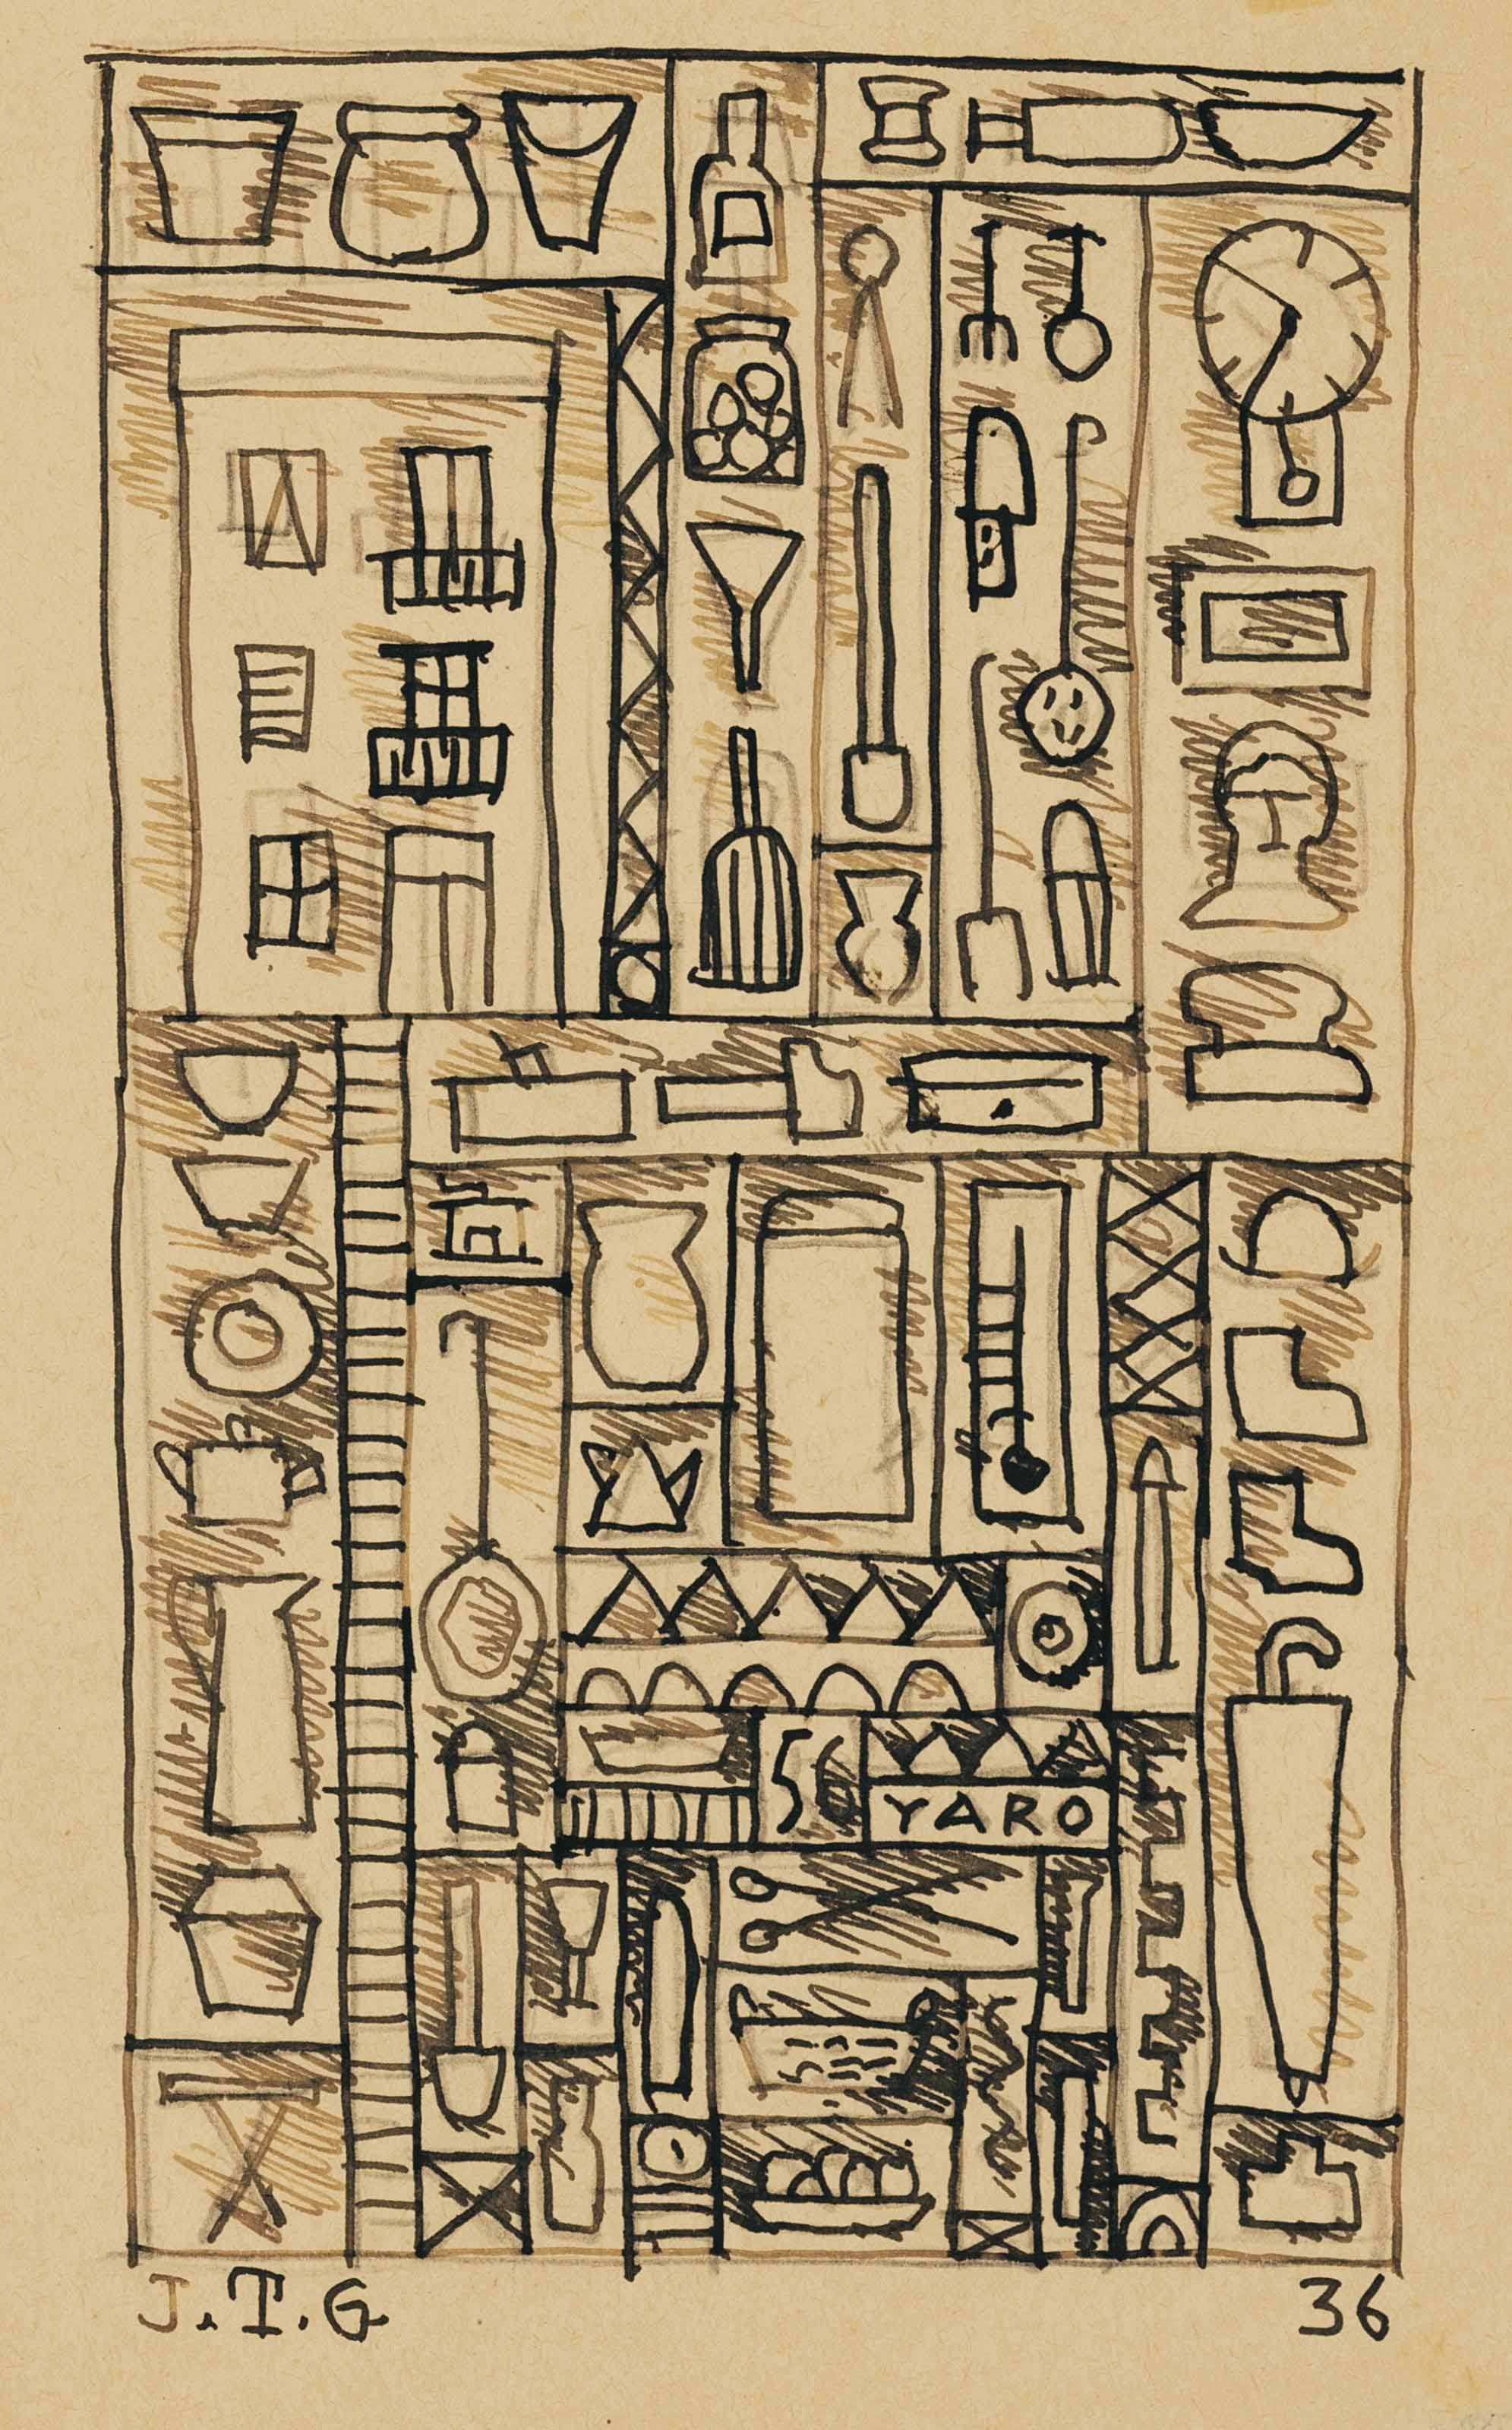 56
YARO
J.T.G.
36